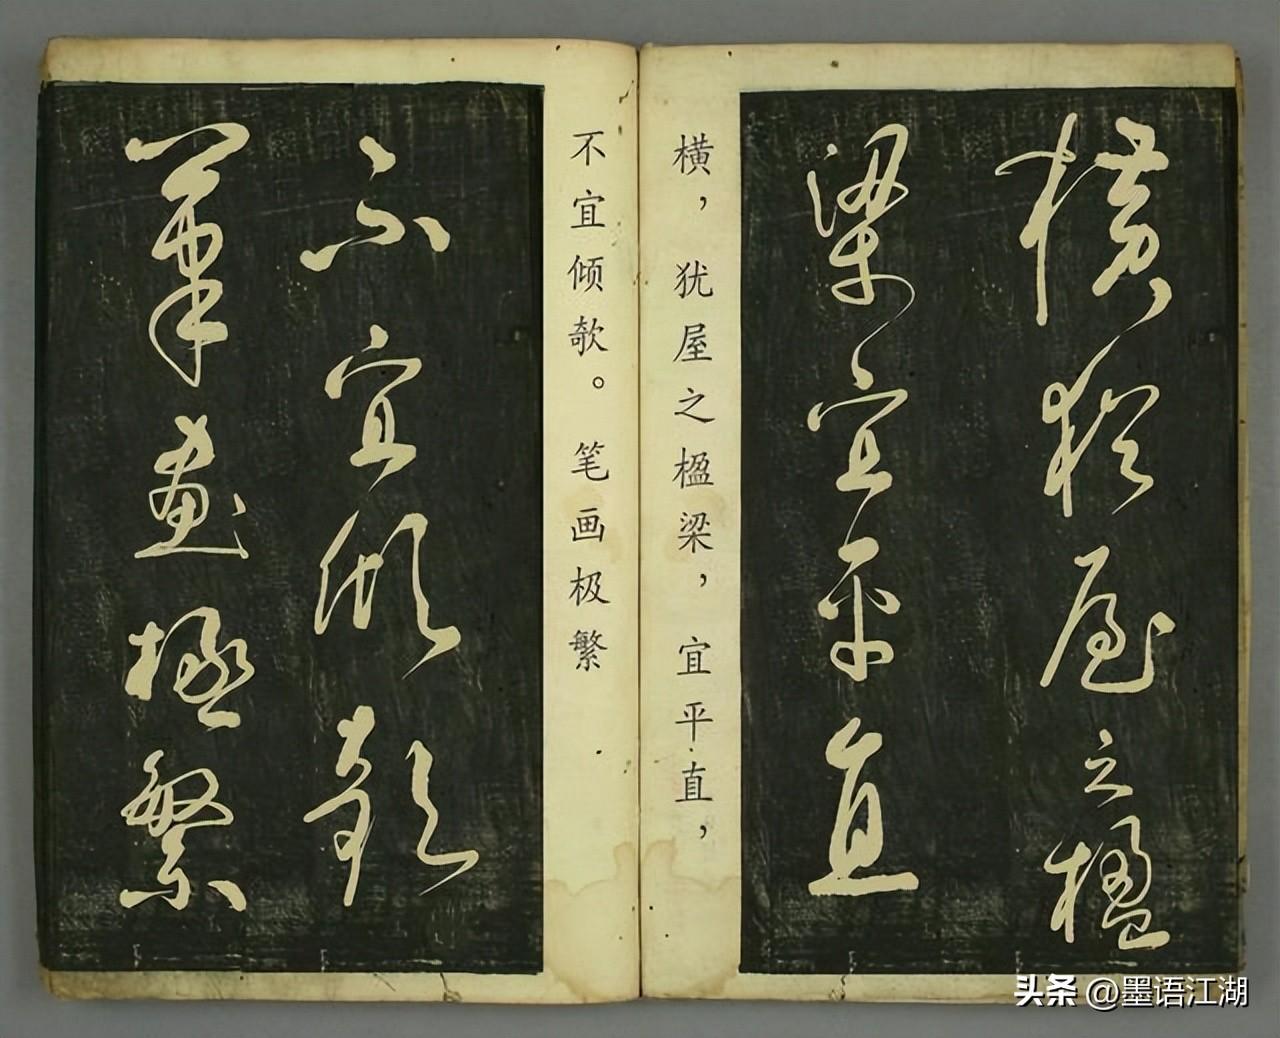 橫犹屋之楹
梁宜平直
横，犹屋之楹梁，宜平直，
不宜倾欹。笔画极繁
不宜倾欹
筆畫極繁
头条 @墨语江湖